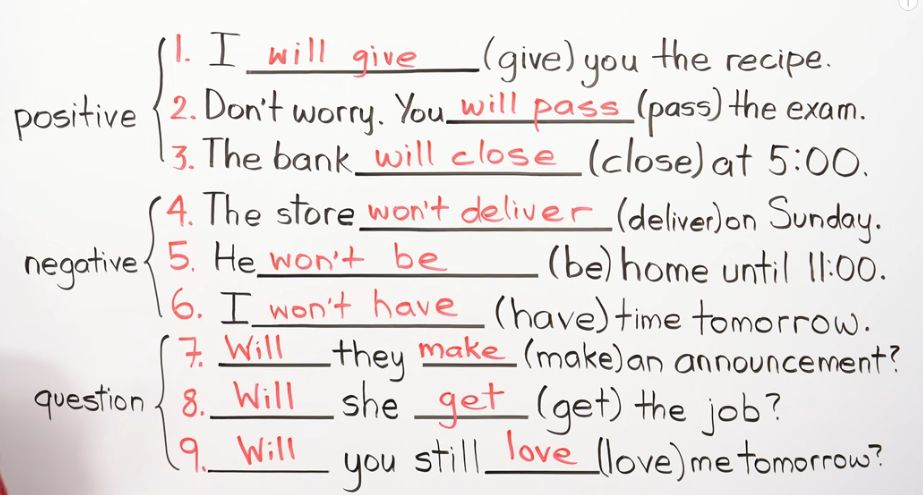 1. I will give (give) you the recipe.
positive 2. Don't worry. You will pass (pass) the exam.
3. The bank will close (close) at 5:00.
4. The store won't deliver (deliver) on Sunday.
negative 5. He won't be (be) home until 11:00.
6. I won't have (have) time tomorrow.
7. Will they make (make) an announcement?
question 8. Will she get (get) the job?
9. Will you still love (love) me tomorrow?